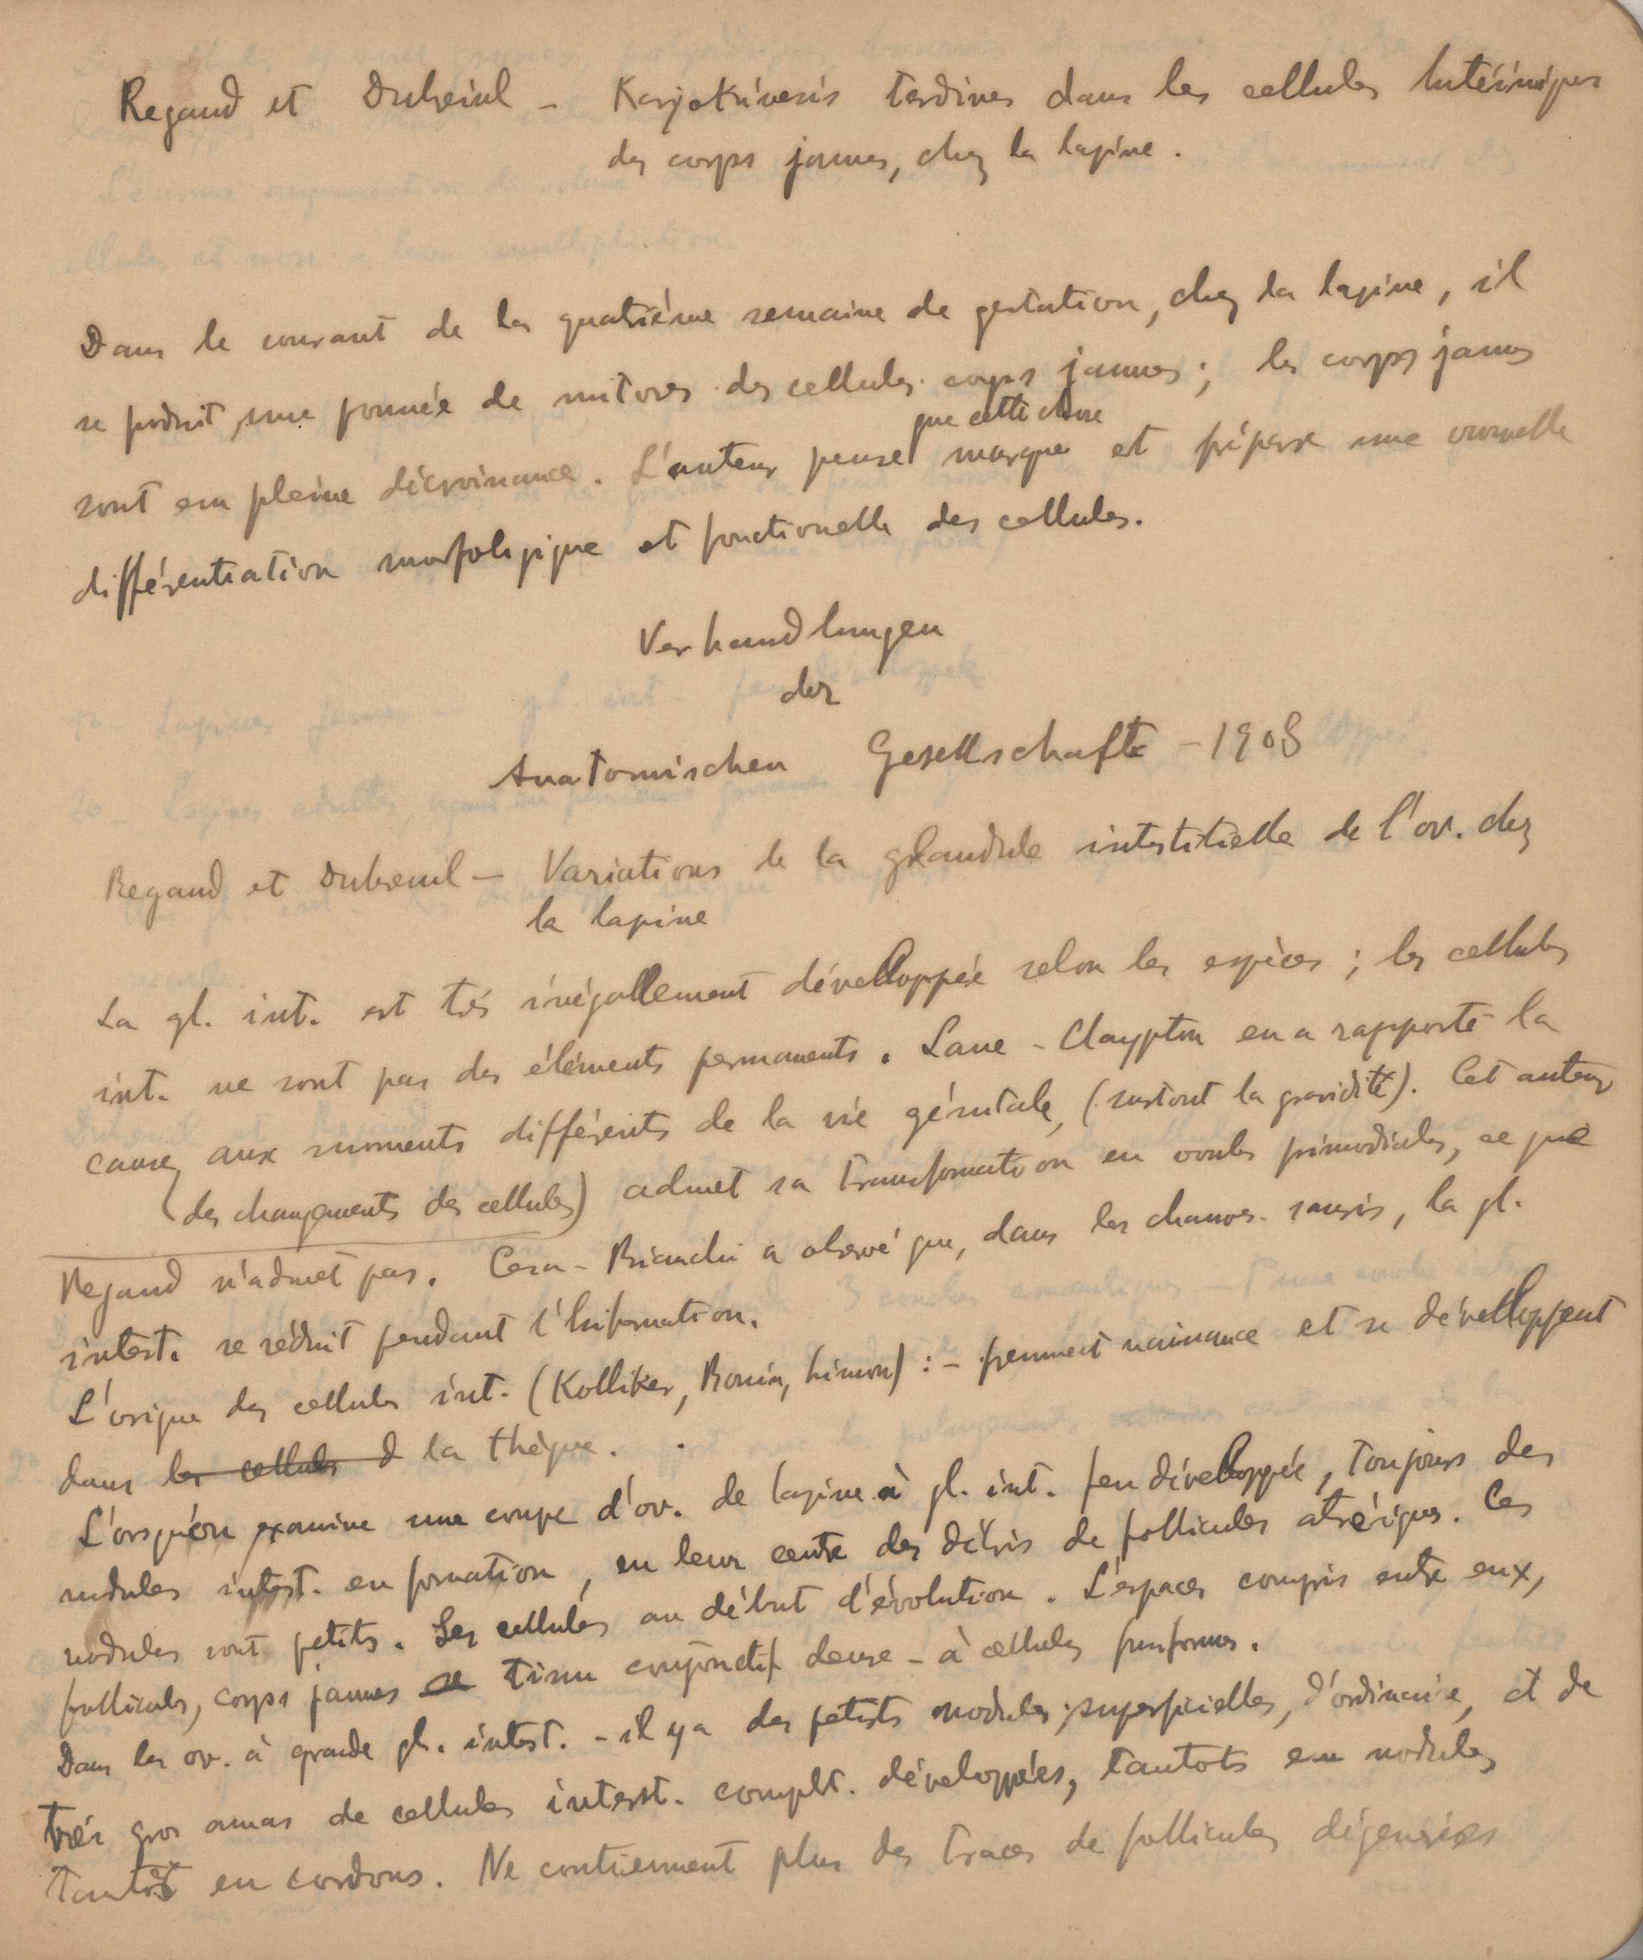 Regaud et Dubreuil - Karjokinesis tardives dans les cellules lutéiniques
des corps jaunes, chez la lapine.
Dans le courant de la quatrième semaine de gestation, chez la lapine, il
se produit une poussée de mitoses des cellules corps jaunes; les corps jaunes
sont en pleine décroissance. L'auteur pense que cette chose marque et prépare une nouvelle
différentiation morfologique et fonctionelle des cellules.
Verhandlungen
der
Anatomischen Gesellschafte - 1908
Regaud et Dubreuil - Variations de la glandule interstitielle de l'ov. chez
la lapine
La gl. int. est trés inégallement dévelloppée selon les espèces; les cellules
int. ne sont pas des éléments permanents. Lane-Claypton en a rapporté la
cause aux moments différents de la vie génitale, (surtout la gravidité). Cet auteur
(des changements des cellules) admet sa transformation en ovules primordiales, ce que
Regaud n'admet pas. Cesa-Bianchi a observé que, dans les chauves-souris, la gl.
interst. se réduit pendant l'hibernation.
L'origine des cellules int. (Kolliker, Bouin, Limon) :- prennent naissance et se dévelloppent
dans les cellules d la thèque.
L'orsqu'on examine une coupe d'ov. de lapine à gl. int. peu dévelloppée, toujours des
nodules interst. en formation, en leur centre des débris de follicules atrésiques. Ces
nodules sont petits. Les cellules au début d'évolution. L'espaces compris entre eux,
follicules, corps jaunes se tissu conjonctif dense - à cellules fusiformes.
Dans les ov. à grande gl. interst. - il y a des petits nodules superficielles, d'ordinaire, et de
trés gros amas de cellules interst. complt. développées, tantots en nodules
tantôt en cordons. Ne contiennent plus des traces de follicules dégenerés